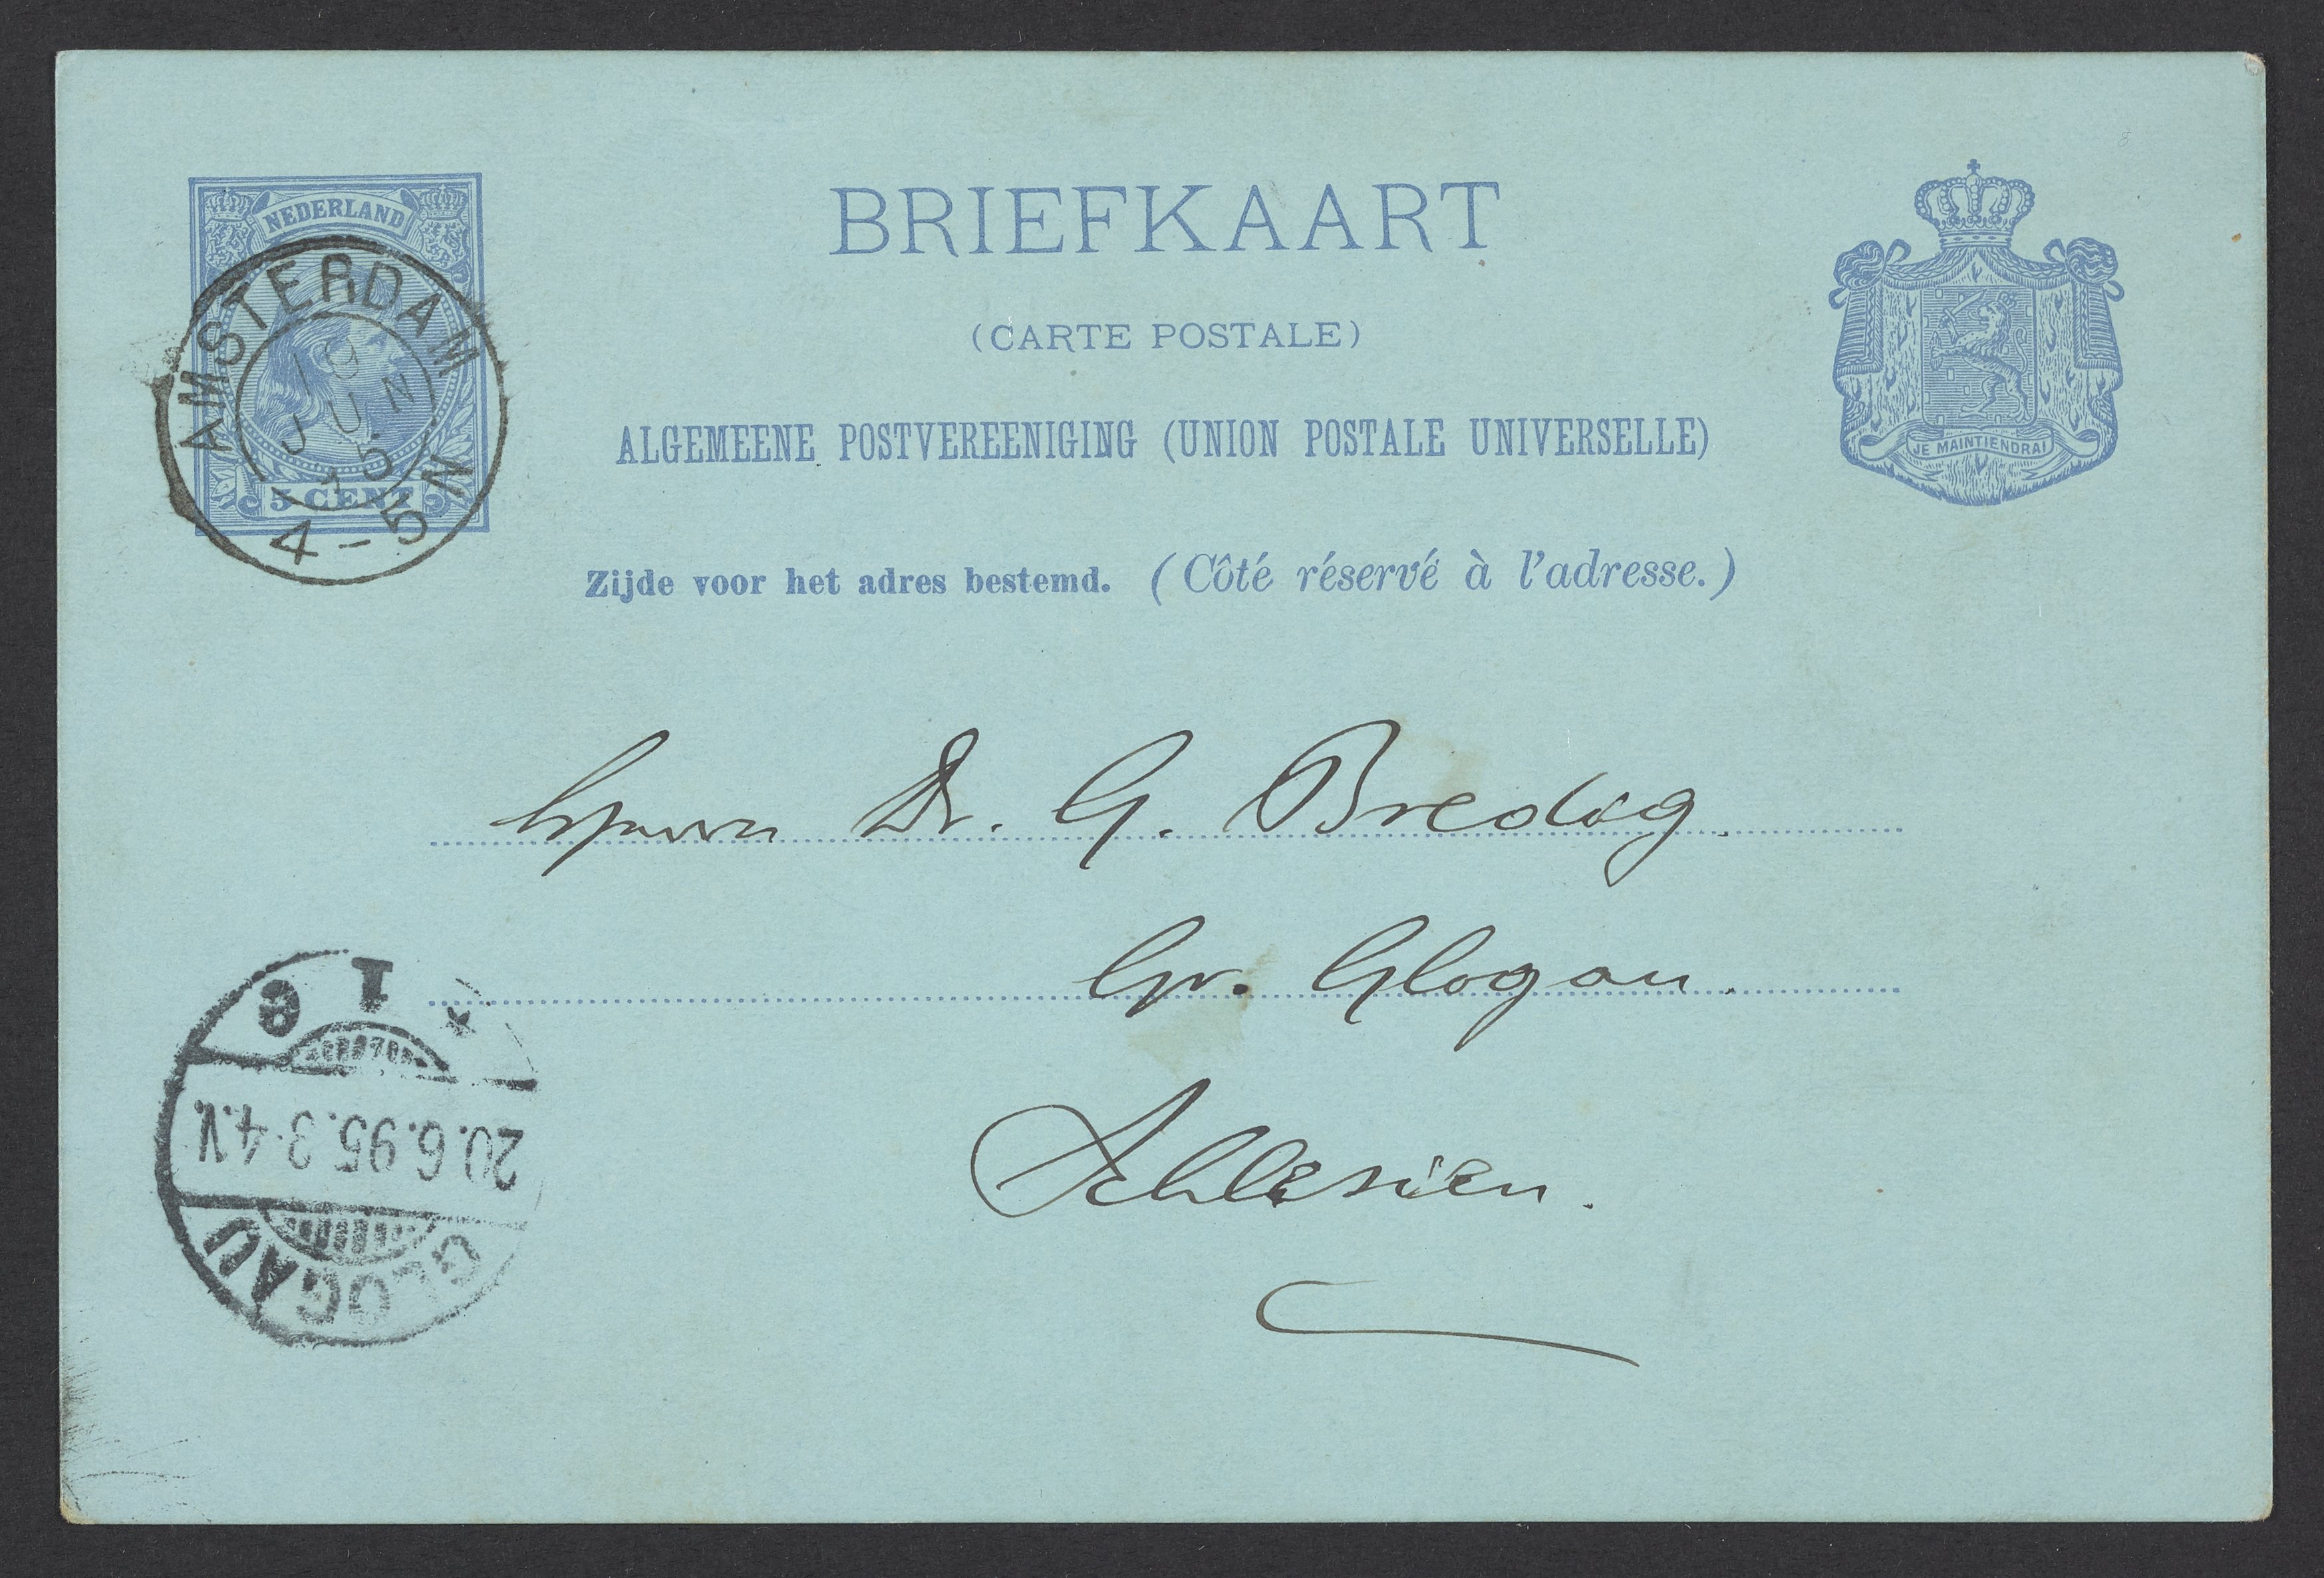 NEDERLAND
5 CENT
AMSTERDAM
19
JUN
95
4-5N
BRIEFKAART
(CARTE POSTALE)
ALGEMEENE POSTVEREENIGING (UNION POSTALE UNIVERSELLE)
Zijde voor het adres bestemd. (Côté réservé à l'adresse.)
JE MAINTIENDRAI
Herrn Dr. G. Bredig.
Gr. Glogau.
Schlesien.
GLOGAU
20.6.95.3-4.V.
* 1 e